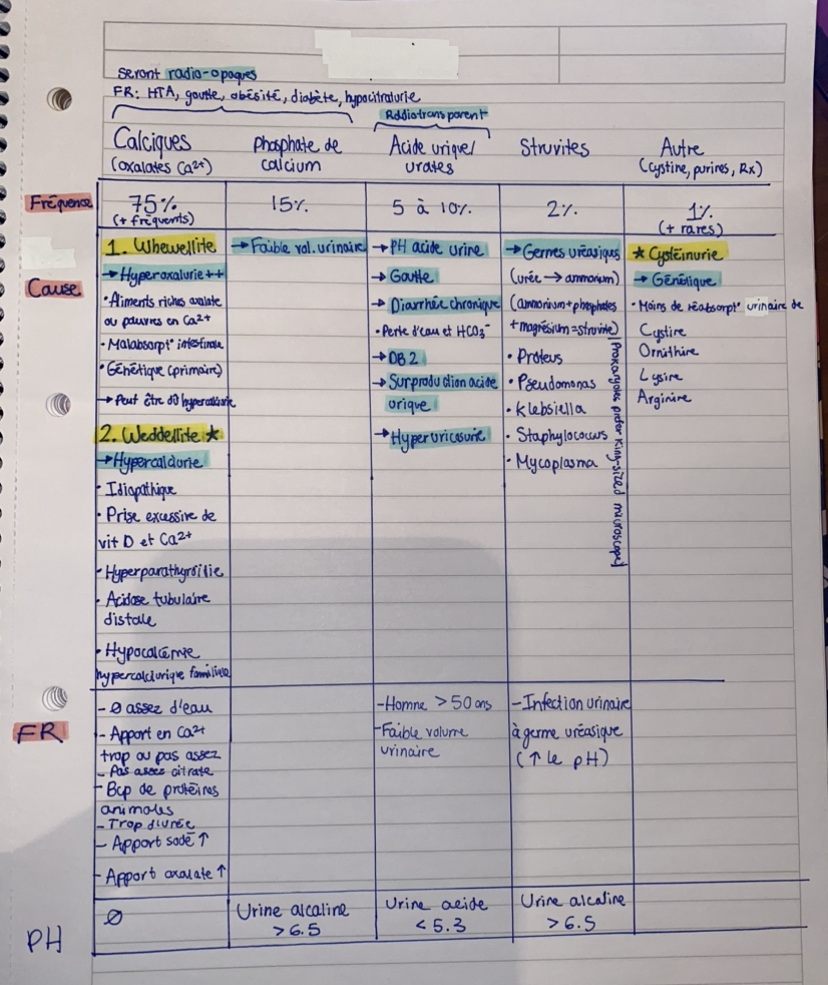 seront radio-opaques
FR: HTA, goutte, obésité, diabète, hypocitraturie
Radiotransparent
Calciques
(oxalates Ca²⁺)
Phosphate de
calcium
Acide urique/
urates
Struvites
Autre
(Cystine, purines, Rx)
Fréquence
75%
(+ fréquents)
15%
5 à 10%
2%
1%
(+ rares)
Cause
1. Whewellite
→ Hyperoxalurie ++
• Aliments riches oxalate
ou pauvres en Ca²⁺
• Malabsorpt° intestinale
• Génétique (primaire)
→ Peut être dû hypercalciurie
2. Weddellite ★
→ Hypercalciurie
• Idiopathique
• Prise excessive de
vit D et Ca²⁺
• Hyperparathyroïdie
• Acidose tubulaire
distale
• Hypocalcémie
hypercalciurique familiale
→ Faible vol. urinaire
→ pH acide urine
→ Goutte
→ Diarrhée chronique
• Perte d'eau et HCO₃⁻
→ DB2
→ Surproduction acide
urique
→ Hyperuricosurie
→ Germes uréasiques
(urée → ammonium)
(ammonium + phosphates
+ magnésium = struvite)
• Proteus
• Pseudomonas
• Klebsiella
• Staphylococcus
• Mycoplasma
(Prokaryotes prefer King-sized microscope)
★ Cystéinurie
→ Génétique
• Moins de réabsorpt° urinaire de
Cystine
Ornithine
Lysine
Arginine
FR
- Ø assez d'eau
- Apport en Ca²⁺
trop ou pas assez
- Pas assez citrate
- Bcp de protéines
animales
- Trop d'urée
- Apport sodé ↑
- Apport oxalate ↑
- Homme > 50 ans
- Faible volume
urinaire
- Infection urinaire
à germe uréasique
(↑ le pH)
PH
Ø
Urine alcaline
> 6.5
Urine acide
< 5.3
Urine alcaline
> 6.5